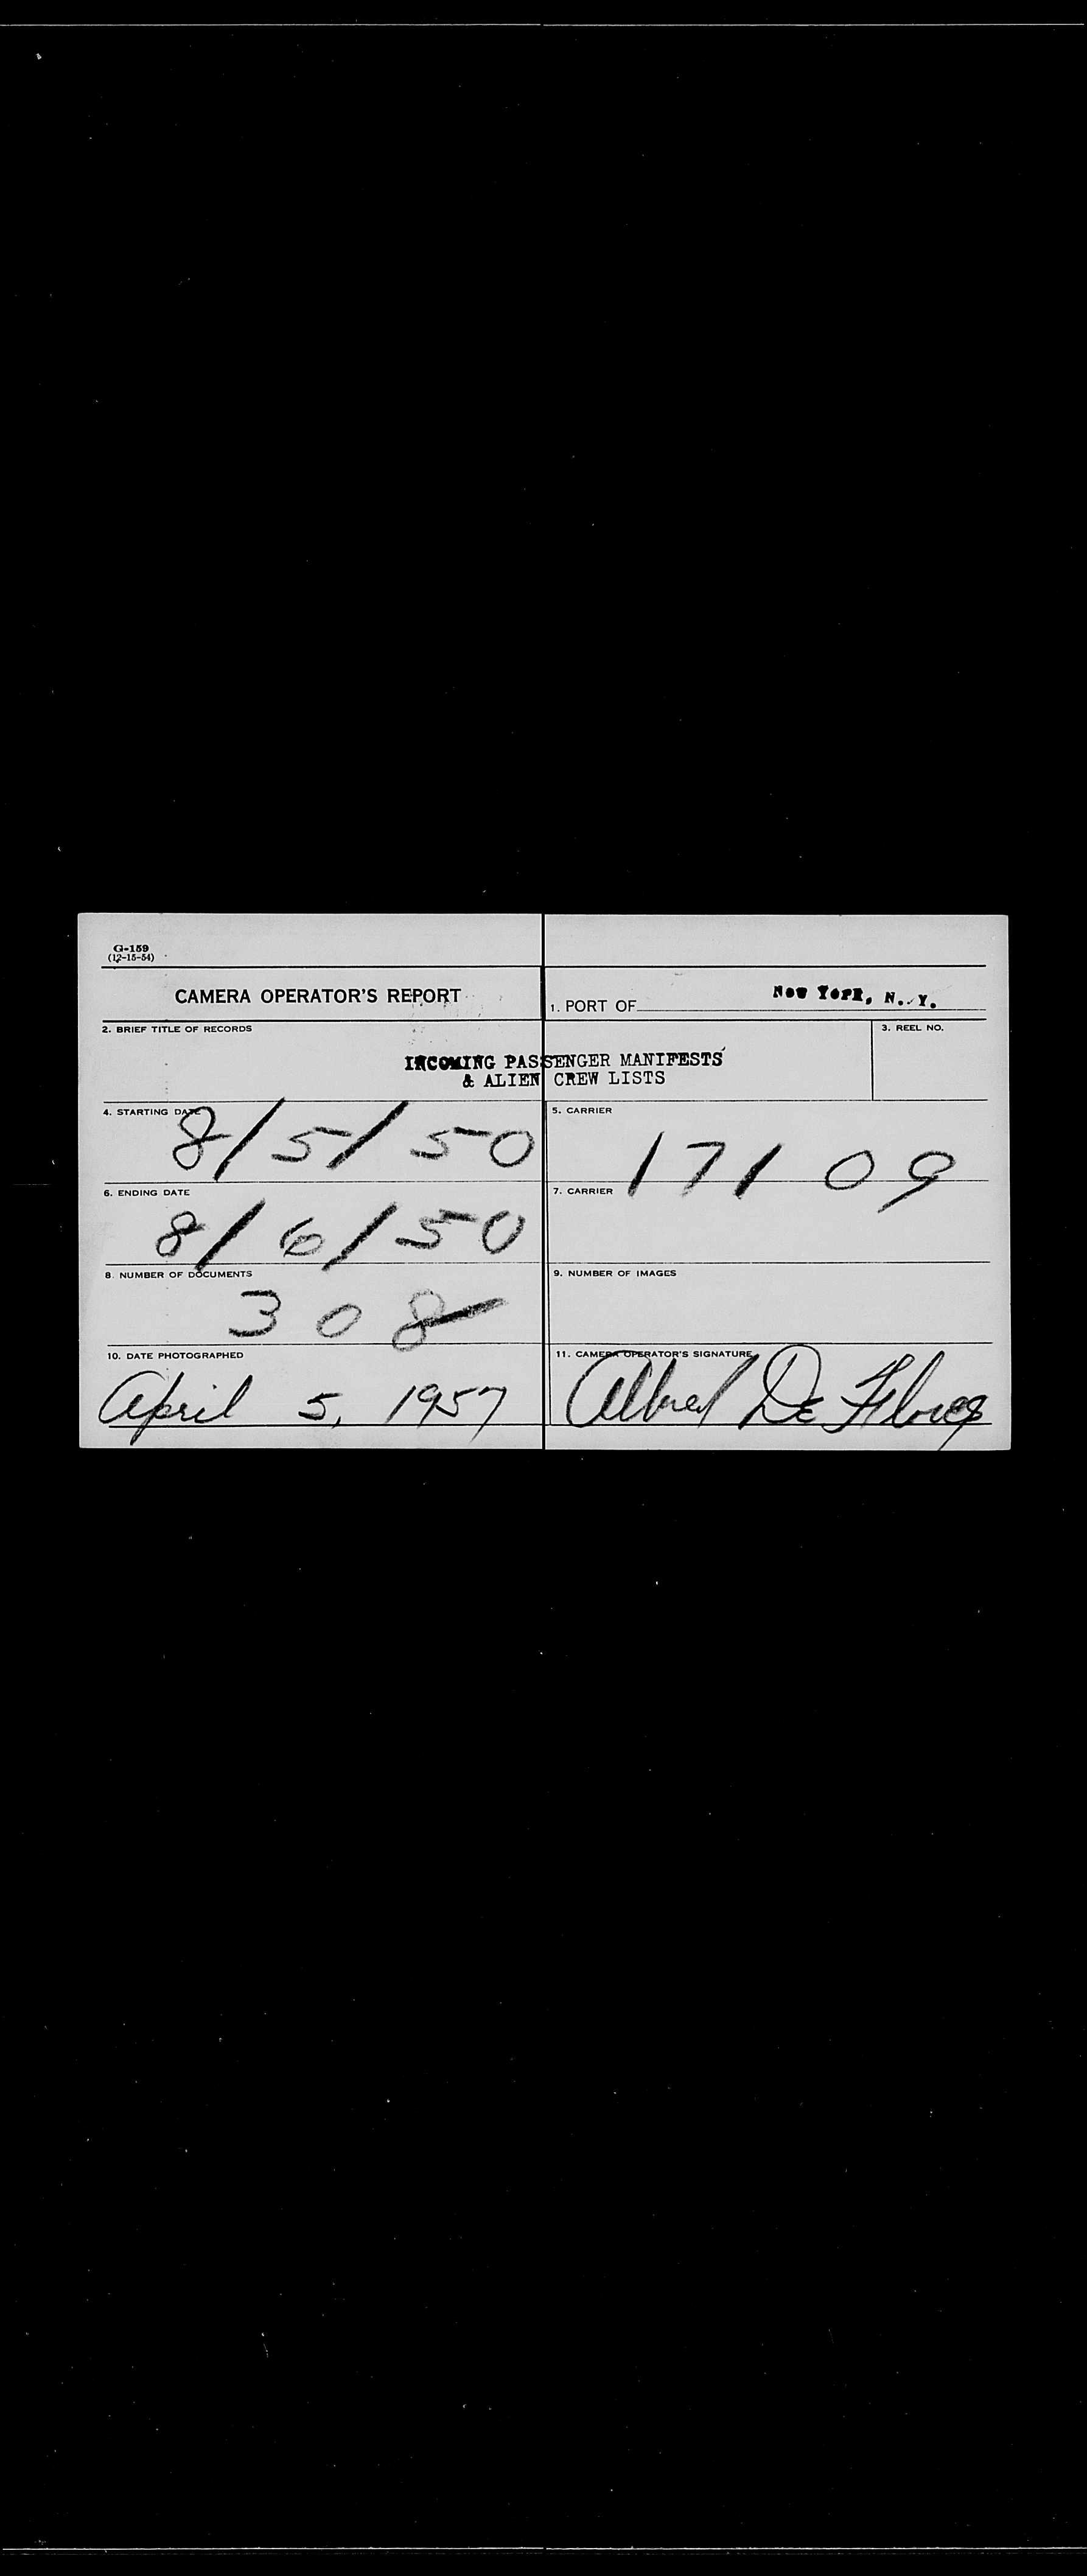 G-159
(12-15-54)
CAMERA OPERATOR'S REPORT
1. PORT OF New York, N. Y.
2. BRIEF TITLE OF RECORDS
3. REEL NO.
INCOMING PASSENGER MANIFESTS
& ALIEN CREW LISTS
4. STARTING DATE
8/5/50
5. CARRIER
17109
6. ENDING DATE
8/6/50
7. CARRIER
8. NUMBER OF DOCUMENTS
308
9. NUMBER OF IMAGES
10. DATE PHOTOGRAPHED
April 5, 1957
11. CAMERA OPERATOR'S SIGNATURE
De